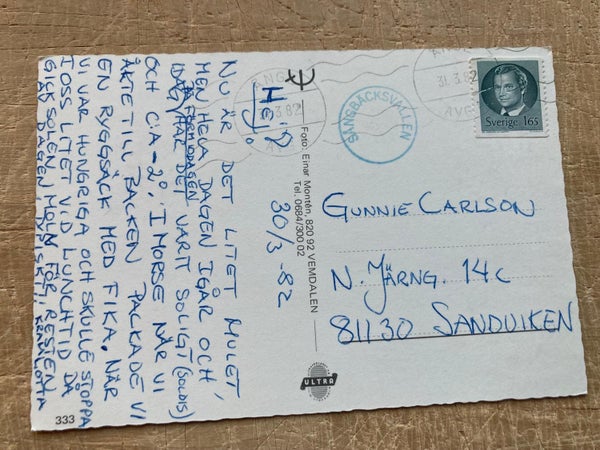 Hej!
30/3-82
NU ÄR DET LITET MULET,
MEN HELA DAGEN IGÅR OCH
PÅ FÖRMIDDAGEN
IDAG HAR DET VARIT SOLIGT (SOLDIS)
OCH C:A -2°. I MORSE NÄR VI
ÅKTE TILL BACKEN PACKADE VI
EN RYGGSÄCK MED FIKA. NÄR
VI VAR HUNGRIGA OCH SKULLE STOPPA
I OSS LITET VID LUNCHTID DÅ
GICK SOLEN I MOLN FÖR RESTEN
AV DAGEN, TYPISKT!
Foto: Einar Montén, 820 92 VEMDALEN
Tel. 0684/300 02
ULTRA
333
SÅNGBÄCKSVALLEN
31.3.82
Sverige 165
GUNNIE CARLSON
N. JÄRNG. 14C
81130 SANDVIKEN